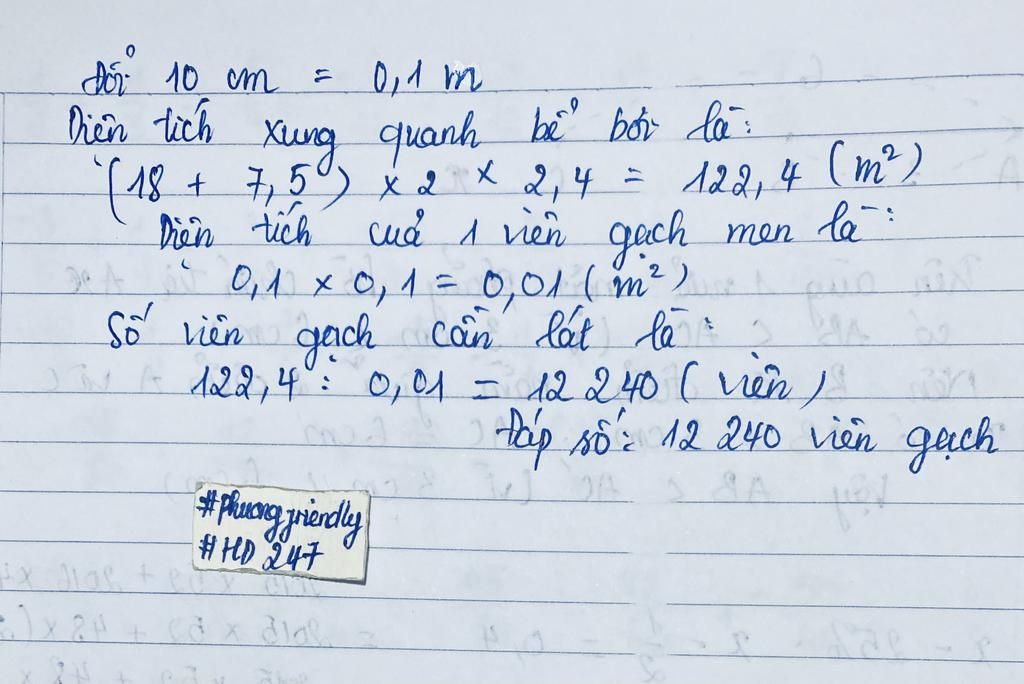 Đổi 10 cm = 0,1 m
Diện tích xung quanh bể bơi là:
(18 + 7,5) x 2 x 2,4 = 122,4 (m²)
Diện tích của 1 viên gạch men là:
0,1 x 0,1 = 0,01 (m²)
Số viên gạch cần lát là:
122,4 : 0,01 = 12 240 (viên)
Đáp số: 12 240 viên gạch
#Phuongfriendly
#HD 247